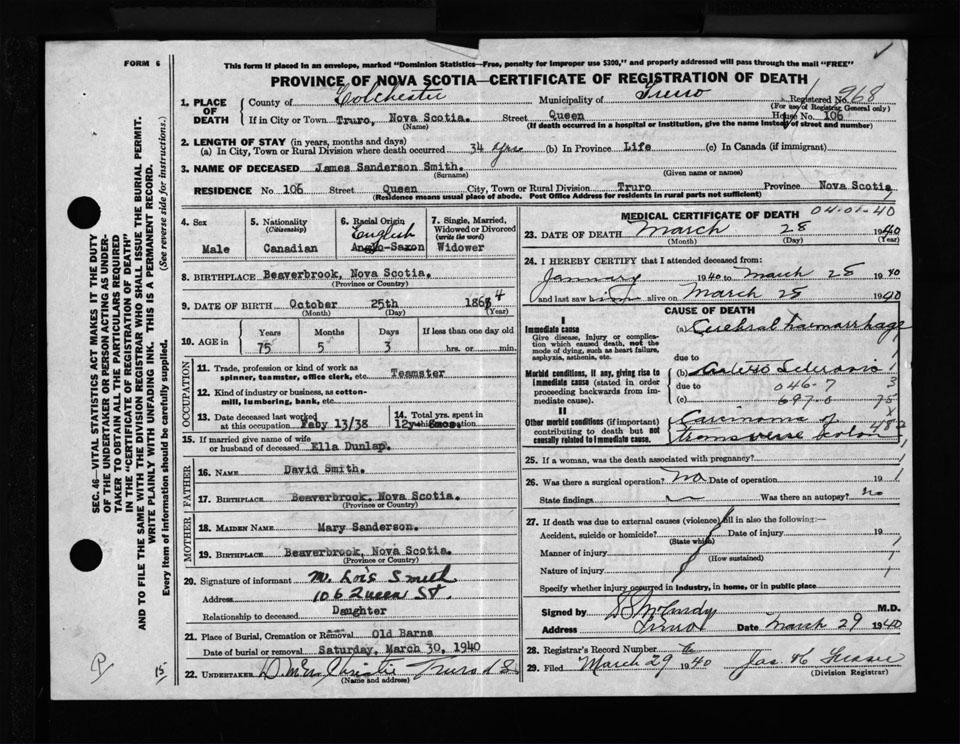 FORM 6
This form if placed in an envelope, marked "Dominion Statistics—Free, penalty for improper use $300," and properly addressed will pass through the mail "FREE"
PROVINCE OF NOVA SCOTIA—CERTIFICATE OF REGISTRATION OF DEATH
1. PLACE OF DEATH
County of Colchester Municipality of Truro Registered No. 968
(For use of Registrar General only)
If in City or Town Truro, Nova Scotia. Street Queen House No. 106
(Name) (If death occurred in a hospital or institution, give the name instead of street and number)
2. LENGTH OF STAY (in years, months and days)
(a) In City, Town or Rural Division where death occurred 34 yrs (b) In Province Life (c) In Canada (if immigrant)
3. NAME OF DECEASED James Sanderson Smith.
(Surname) (Given name or names)
RESIDENCE No. 106 Street Queen City, Town or Rural Division Truro Province Nova Scotia
(Residence means usual place of abode. Post Office Address for residents in rural parts not sufficient)
4. Sex
Male
5. Nationality (Citizenship)
Canadian
6. Racial Origin
English
Anglo-Saxon
7. Single, Married, Widowed or Divorced (write the word)
Widower
8. BIRTHPLACE Beaverbrook, Nova Scotia.
(Province or Country)
9. DATE OF BIRTH October 25th 1864
(Month) (Day) (Year)
10. AGE in
Years Months Days If less than one day old
75 5 3 hrs. or min.
OCCUPATION
11. Trade, profession or kind of work as spinner, teamster, office clerk, etc. Teamster
12. Kind of industry or business, as cotton-mill, lumbering, bank, etc.
13. Date deceased last worked at this occupation Feby 13/38
14. Total yrs. spent in
15. If married give name of wife or husband of deceased Ella Dunlap.
FATHER
16. NAME David Smith.
17. BIRTHPLACE Beaverbrook, Nova Scotia.
(Province or Country)
MOTHER
18. MAIDEN NAME Mary Sanderson.
19. BIRTHPLACE Beaverbrook, Nova Scotia.
(Province or Country)
20. Signature of informant M. Lois Smith
Address 106 Queen St.
Relationship to deceased Daughter
21. Place of Burial, Cremation or Removal Old Barns
Date of burial or removal Saturday, March 30, 1940
22. UNDERTAKER Christie Truro N S
(Name and address)
MEDICAL CERTIFICATE OF DEATH
04-01-40
23. DATE OF DEATH March 28 1940
(Month) (Day) (Year)
24. I HEREBY CERTIFY that I attended deceased from:
January 1940 to March 28 1940
and last saw him alive on March 28 1940
CAUSE OF DEATH
I
Immediate cause
Give disease, injury or complication which caused death, not the mode of dying, such as heart failure, asphyxia, asthenia, etc.
(a) Cerebral haemorrhage
due to
Morbid conditions, if any, giving rise to immediate cause (stated in order proceeding backwards from immediate cause).
(b) Arterio Sclerosis
due to 046-7
(c) 697-0
II
Other morbid conditions (if important) contributing to death but not causally related to immediate cause.
Carcinoma of
transverse colon
25. If a woman, was the death associated with pregnancy?
26. Was there a surgical operation? No Date of operation 19
State findings Was there an autopsy? no
27. If death was due to external causes (violence) fill in also the following:—
Accident, suicide or homicide? Date of injury 19
(State which)
Manner of injury
(How sustained)
Nature of injury
Specify whether injury occurred in industry, in home, or in public place
Signed by McCurdy M.D.
Address Truro Date March 29 1940
28. Registrar's Record Number
29. Filed March 29 1940 Jas. Fraser
(Division Registrar)
SEC. 46—VITAL STATISTICS ACT MAKES IT THE DUTY
OF THE UNDERTAKER OR PERSON ACTING AS UNDER-
TAKER TO OBTAIN ALL THE PARTICULARS REQUIRED
IN THE "CERTIFICATE OF REGISTRATION OF DEATH"
AND TO FILE THE SAME WITH THE DIVISION REGISTRAR WHO SHALL ISSUE THE BURIAL PERMIT.
WRITE PLAINLY WITH UNFADING INK. THIS IS A PERMANENT RECORD.
Every item of information should be carefully supplied. (See reverse side for instructions.)
P
15